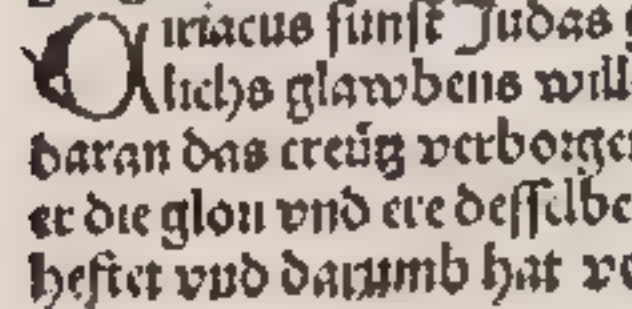 Quiriacus sunst Judas
lichs glawbens will
daran das creütz verborge
er die glori vnd ere desselbe
hefftet vnd darumb hat